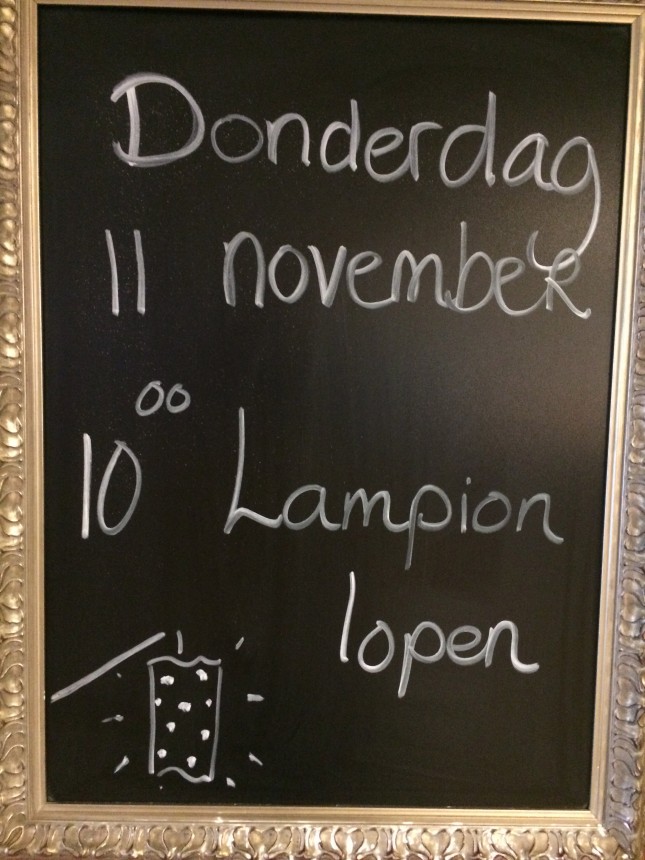 Donderdag
11 november
10 00 Lampion
lopen